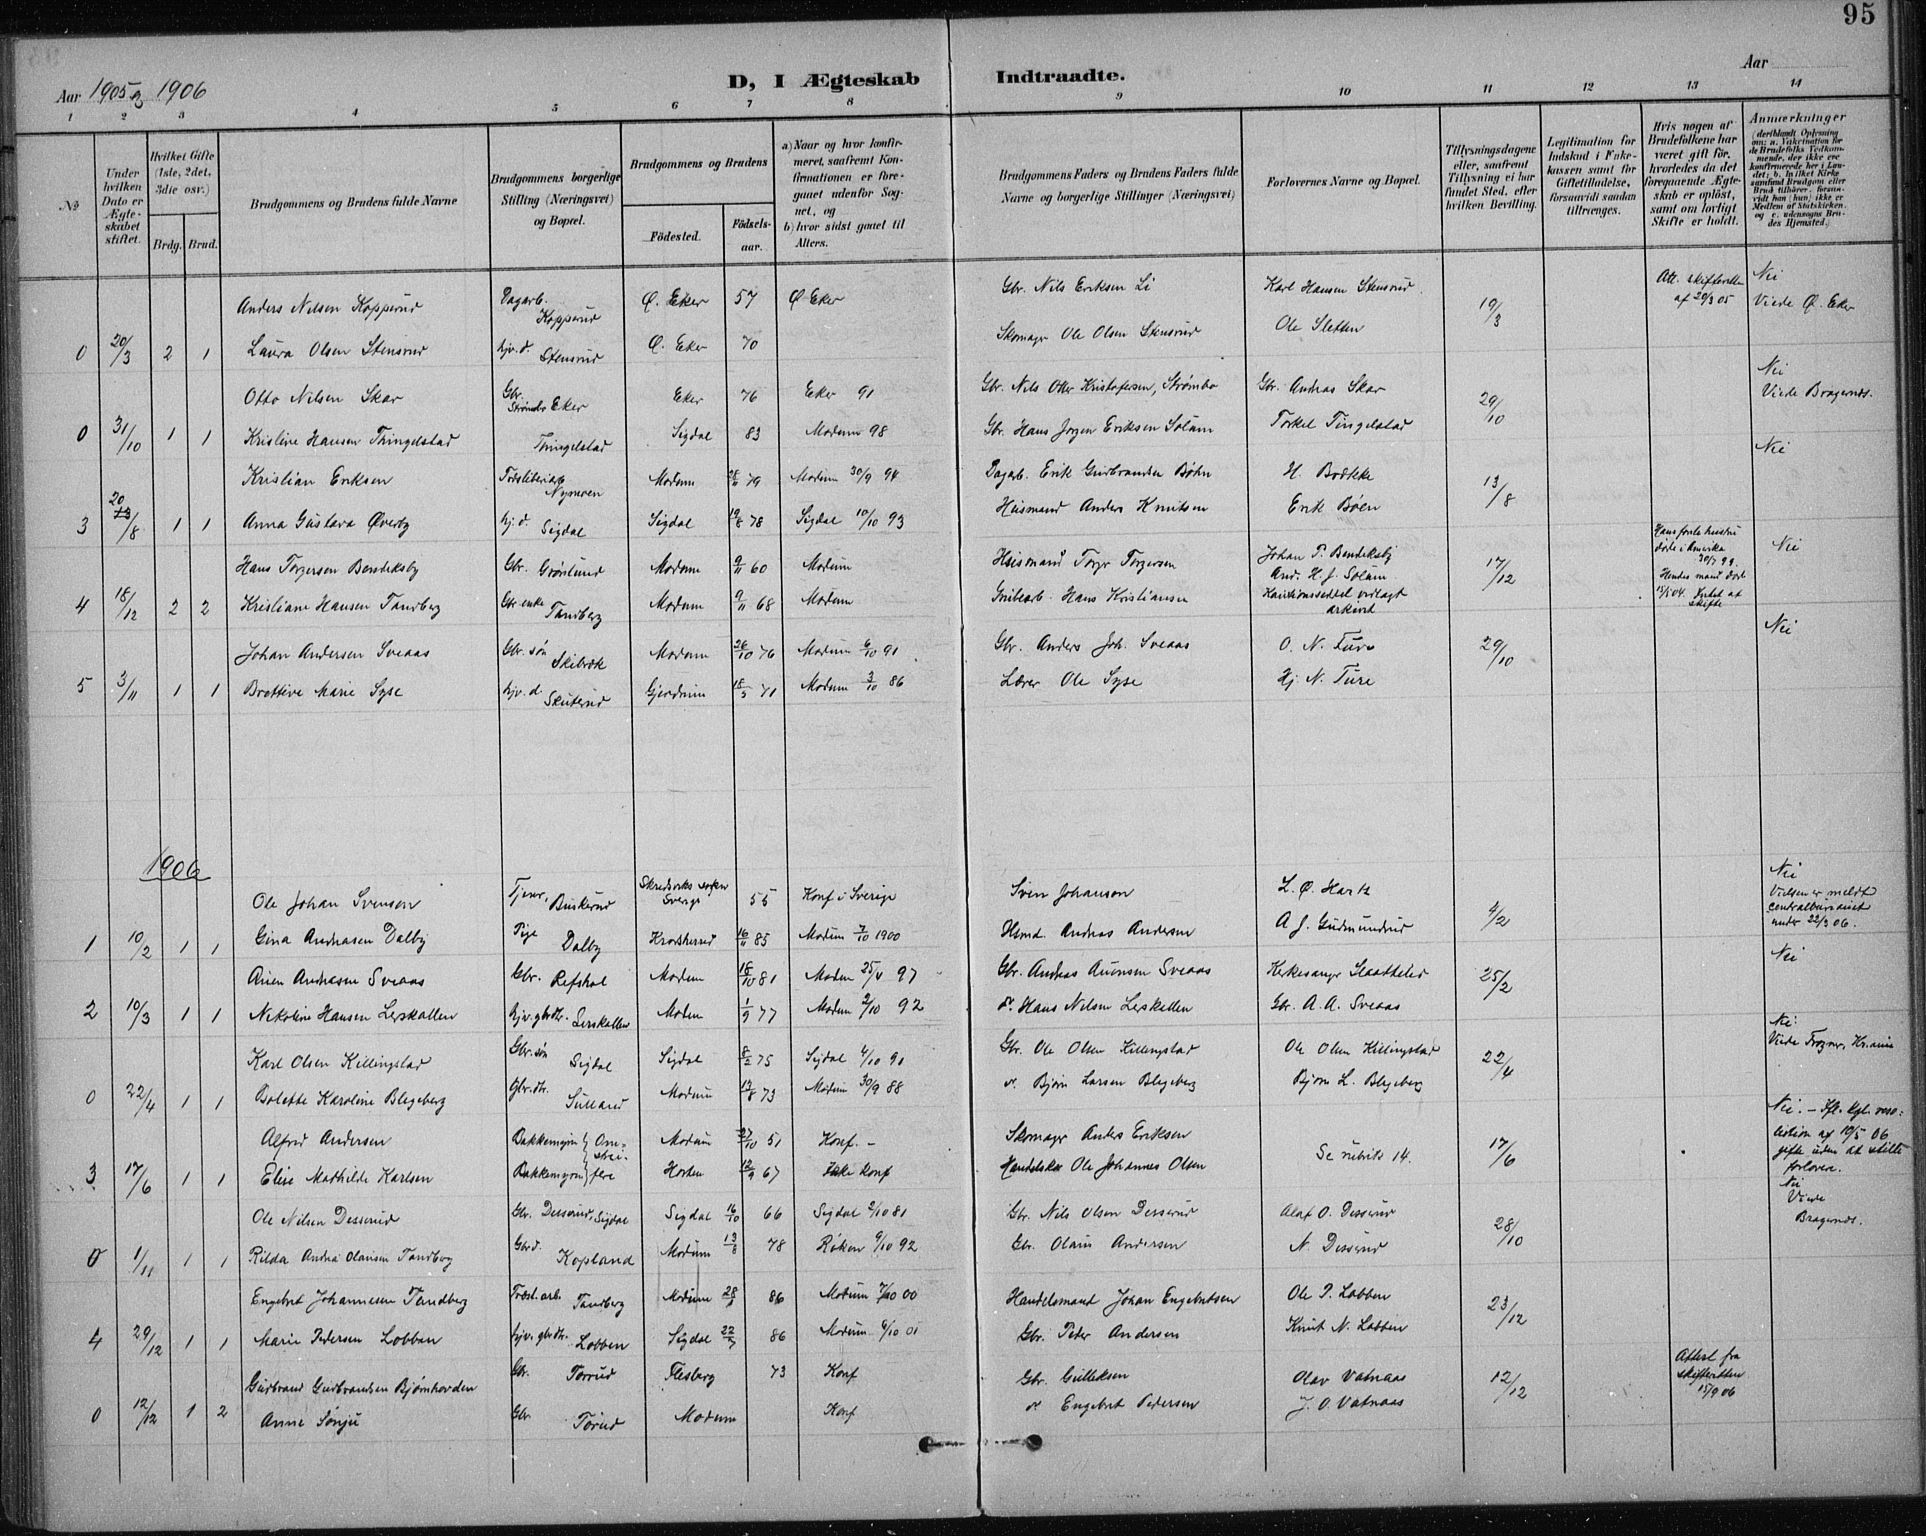 95
Aar 1905 og 1906
D, I Ægteskab Indtraadte.
Aar
1 2 3 4 5 6 7 8 9 10 11 12 13 14
No
Under hvilken Dato er Ægteskabet stiftet.
Hvilket Gifte (1ste, 2det, 3die osv.)
Brdg. Brud.
Brudgommens og Brudens fulde Navne
Brudgommens borgerlige Stilling (Næringsvei) og Bopæl.
Brudgommens og Brudens
Födested.
Födselsaar.
a) Naar og hvor konfirmeret, saafremt Konfirmationen er foregaaet udenfor Sognet, og
b) hvor sidst gaaet til Alters.
Brudgommens Faders og Brudens Faders fulde Navne og borgerlige Stillinger (Næringsvei)
Forlovernes Navne og Bopæl.
Tillysningsdagene eller, saafremt Tillysning ei har fundet Sted, efter hvilken Bevilling.
Legitimation for Indskud i Enkekassen samt for Giftetilladelse, forsaavidt saadan tiltrænges.
Hvis nogen af Brudefolkene har været gift för, hvorledes da det foregaaende Ægteskab er oplöst, samt om lovligt Skifte er holdt.
Anmærkninger (deriblandt Oplysning om: a. Vakcination for de Brudefolks Vedkommende, der ikke ere konfirmerede her i Landet; b. hvilket Kirkesamfund Brudgom eller Brud tilhörer, forsaavidt han (hun) ikke er Medlem af Statskirken, og c. udensogns Brudes Hjemsted.)
Anders Nilsen Kopperud Dagarb. Kopperud Ø. Eker 57 Ø Eker Gbr. Nils Eriksen Li Karl Hansen Stensrud 19/3 Att. skifteretten af 20/3 05 Nei Viede Ø. Eker
0 20/3 2 1 Laura Olsen Stensrud hjv. d. Stensrud Ø. Eker 70 Skomager Ole Olsen Stensrud Ole Sletten
Otto Nilsen Skar Gbr. Strømbo Eker Eker 76 Eker 91 Gbr. Nils Otter Kristofersen, Strømbo Gbr. Andras Skar 29/10 Nei Viede Bragernes.
0 31/10 1 1 Kristine Hansen Thingelstad Thingelstad Sigdal 83 Modum 98 Gbr. Hans Jorgen Eriksen Solum Torkel Tingelstad
Kristian Eriksen Nymoen Modum 28/11 79 Modum 30/9 94 Dagarb. Erik Gudbrandsen Bøhn H. Bødtkke 13/8 Nei
3 20/8 1 1 Anna Gustava Øverby hj. d. Sigdal Sigdal 19/8 78 Sigdal 10/10 93 Husmand Anders Knutsen Erik Böen
Hans Torgersen Bendeksby Gbr. Grøslund Modum 9/11 60 Modum Husmand Torgr Torgersen Johan P. Bendeksby And. H. J. Solum 17/12 Hans forste hustru döde i Amerika 30/7 99. Hendes mand döde 13/1 04. Intet at skifte Nei
4 18/12 2 2 Kristiane Hansen Tandberg Gbr enke Tandberg Modum 9/11 68 Modum Grubearb. Hans Kristiansen Kautionsseddel vedlagt arkivet
Johan Andersen Sveaas Gbr. sön Skibræk Modum 26/10 76 Modum 6/10 91 Gbr. Anders Joh. Sveaas O. N. Fure 29/10 Nei
5 3/11 1 1 Brottive Marie Syse hjv. d. Skuterud Gjerdrum 18/5 71 Modum 3/10 86 Lærer Ole Syse Hj. N. Fure
1906
Ole Johan Svensen Tjener, Buskerud Skredsviks sogn Sverige 55 Konf i Sverige Sven Johanson L. Ø. Hartz 4/2 Nei Vielsen er meldt centralbureauet under 22/3 06.
1 10/2 1 1 Gina Andrasen Dalby Pige Dalby Krødsherred 16/11 85 Modum 7/10 1900 Hsmd. Andras Andersen A J. Gudmundrud
Auen Andrasen Sveaas Gbr. Refshol Modum 18/10 81 Modum 25/4 97 Gbr. Andras Auensen Sveaas Kirkesanger Slaatteled 25/2 Nei
2 10/3 1 1 Nikoline Hansen Lerskallen hjv. gbrdtr. Lerskallen Modum 1/9 77 Modum 2/10 92 Hans Nilsen Lerskallen Gbr. A. A. Sveaas
Karl Olsen Killingstad Gbr. sön Sigdal Sigdal 8/2 75 Sigdal 4/10 91 Gbr. Ole Olsen Killingstad Ole Olsen Killingstad 22/4 Nei Viede Frogner, Kr.ania
0 22/4 1 1 Bolette Karoline Blegeberg Gbr. dtr. Sulland Modum 13/8 73 Modum 30/9 88 Bjørn Larsen Blegeberg Bjørn L. Blegeberg
Alfred Andersen Bakkemoen Omstreifere Modum 27/10 51 Konf. - Skomager Anders Eriksen Se rubrik 14. 17/6 Nei. - Ifl. kgl. resolution af 19/5 06 gifte uden at stille forlovere.
3 17/6 1 1 Elise Mathilde Karlsen Bakkemoen Horten 12/9 67 Ikke konf Ole Johannes Olsen
Ole Nilsen Desserud Gbr. Desserud, Sigdal Sigdal 16/10 66 Sigdal 2/10 81 Gbr. Nils Olsen Desserud Olaf O. Desserud 28/10 Nei Viede Bragernes.
0 1/11 1 1 Rilda Andrea Olausen Tandberg Gbrd. Kopland Modum 13/8 78 Røken 9/10 92 Gbr. Olaus Andersen N. Desserud
Engebret Johannesen Tandberg Træsl. arb. Tandberg Modum 86 Modum 7/10 00 Handelsmand Johan Engebretsen Ole P. Lobben 23/12
4 29/12 1 1 Marie Pedersen Lobben hjv. gbrdtr. Lobben Sigdal 86 Modum 6/10 01 Gbr. Peter Andersen Knut N. Lobben
Gudbrand Gudbrandsen Bjørnhovden Gbr. Torrud Flesberg 73 Konf Gbr. Gulleksen Olav Vatnaas 12/12 Attest fra skifteretten 15/9 06
0 12/12 1 2 Anne Sønju Gbr Torud Modum Konf Engebret Pedersen J. O. Vatnaas